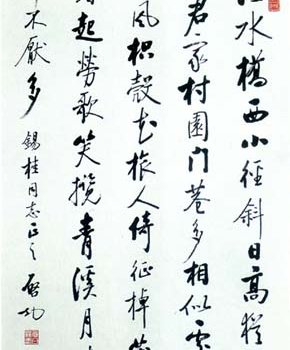 水橋西小徑斜日高猶
君家村園門巷多相似處
風枳殼花旅人倚征棹薄
起勞歌笑攬青溪月
不厭多 錫桂同志正之 啟功